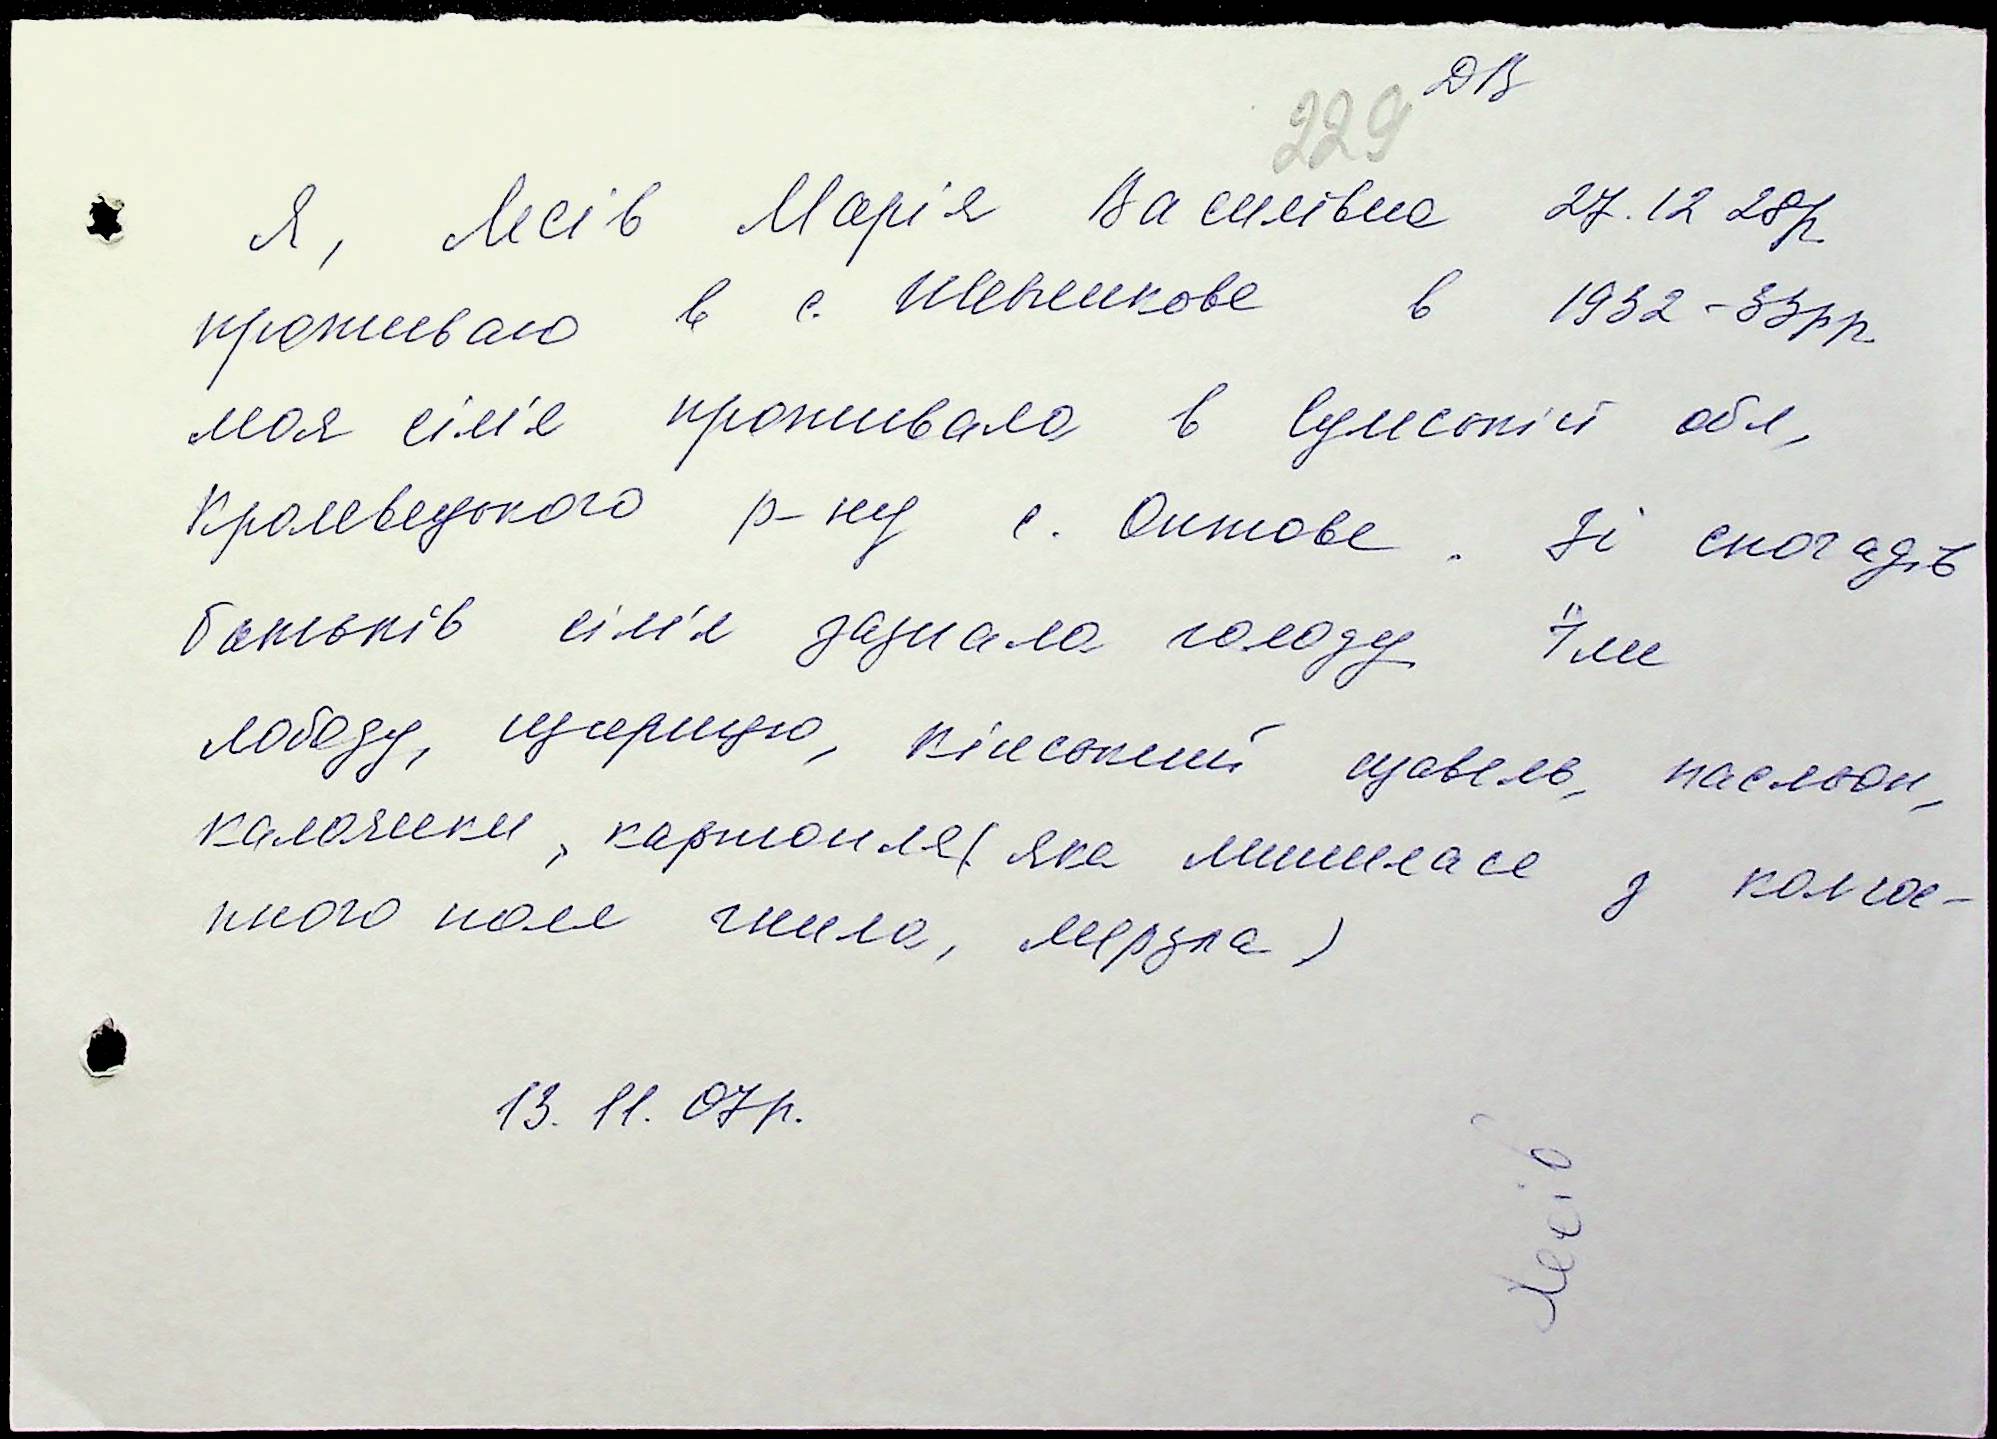 ДВ
229
Я, Лесів Марія Василівна 27.12 28р
проживаю в с. Шевченкове в 1932-33рр
моя сім'я проживала в Сумській обл,
Кролевецького р-ну с. Оптове. Зі спогадів
батьків сім'я зазнала голоду Їли
лободу, щирицю, кінський щавель, пасльон,
калачики, картопля (яка лишилася з колгос-
пного поля гнила, мерзла)
13.11.07р.
Лесів